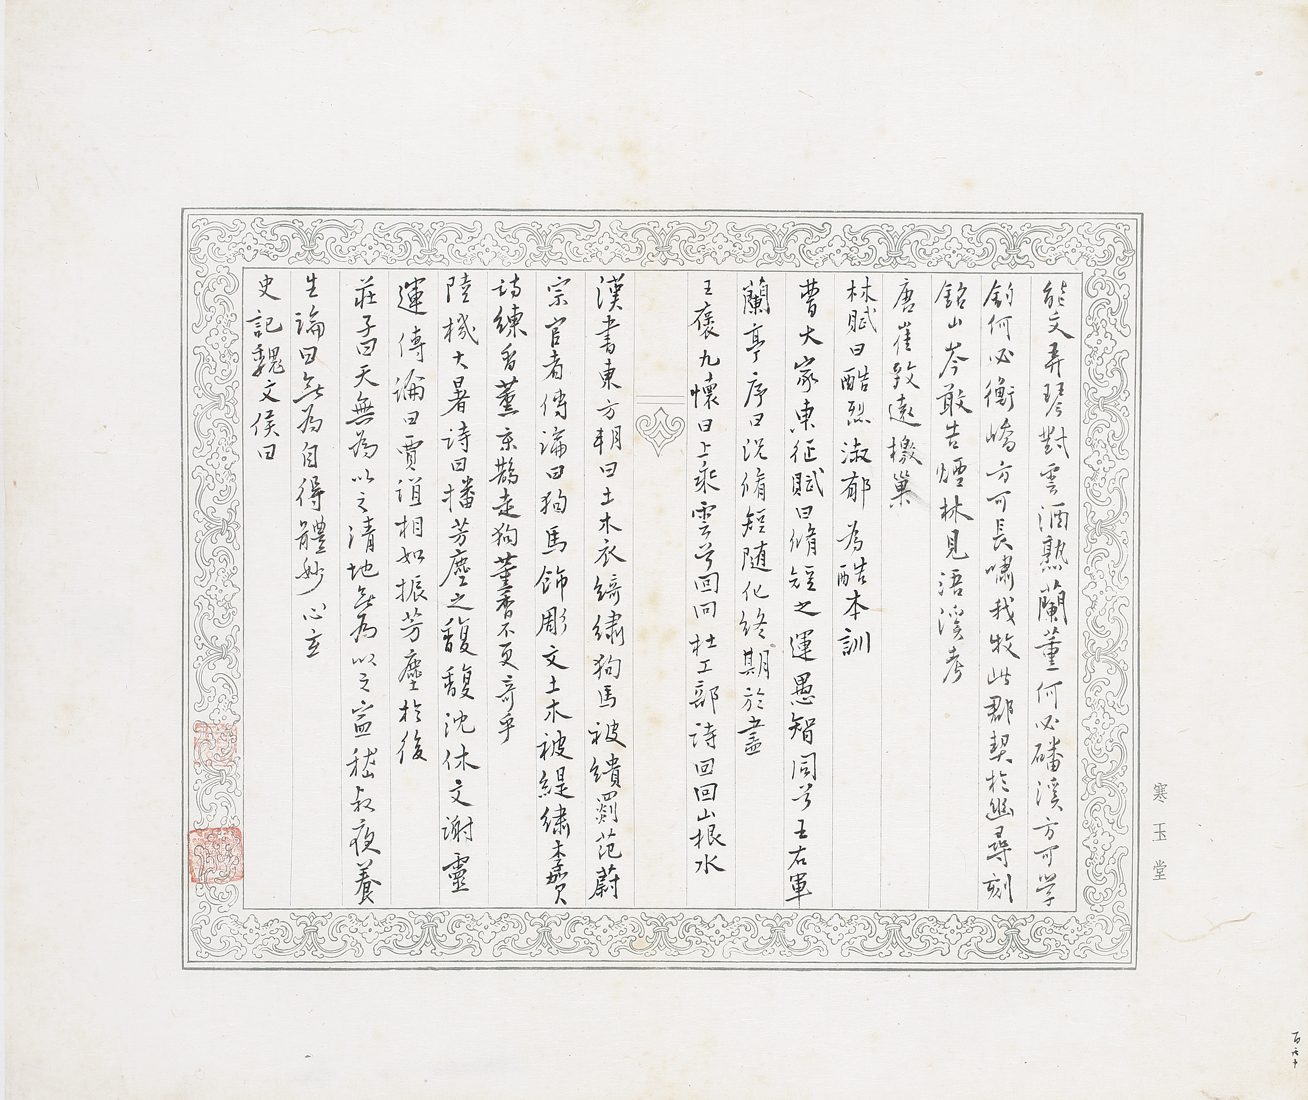 能文弄琴對雲酒熟蘭薰何必磻溪方可學
釣何必衡嶠方可長嘯我牧此郡契於幽尋刻
銘山岑敢告煙林見浯溪考
唐崔敦遠檄巢
林賦曰酷烈淑郁為酷本訓
曹大家東征賦曰脩短之運愚智同兮王右軍
蘭亭序曰況脩短隨化終期於盡
王褒九懷曰上乘雲兮回回杜工部詩回回山根水
漢書東方朔曰土木衣綺繡狗馬被繢罽范蔚
宗宦者傳論曰狗馬飾彫文土木被緹繡李賀
詩練香薰宋鵲走狗薰香不更奇乎
陸機大暑詩曰播芳塵之馥馥沈休文謝靈
運傳論曰賈誼相如振芳塵於後
莊子曰天無為以之清地無為以之寧嵇叔夜養
生論曰無為自得體妙心玄
史記魏文侯曰
寒玉堂